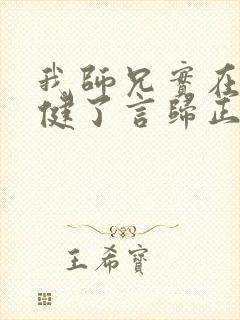 我師兄實在
健了言歸正
王希寶